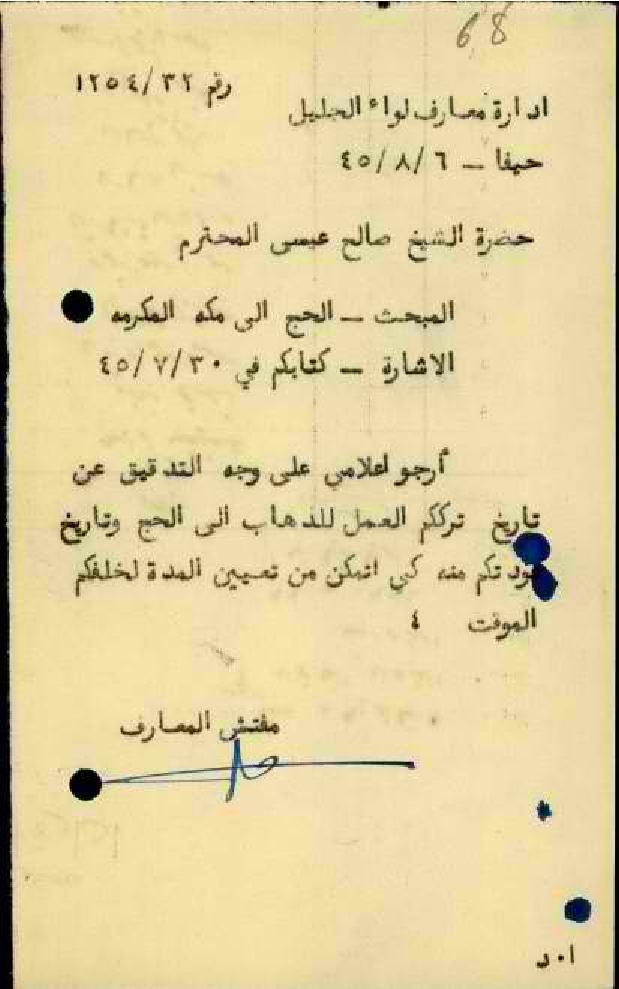 68
رقم ١٢٥٤/٣٢
ادارة معارف لواء الجليل
حيفا _ ٤٥/٨/٦
حضرة الشيخ صالح عيسى المحترم
المبحث _ الحج الى مكه المكرمه
الاشارة _ كتابكم في ٤٥/٧/٣٠
أرجو اعلامي على وجه التدقيق عن
تاريخ ترككم العمل للذهاب الى الحج وتاريخ
عودتكم منه كي اتمكن من تعيين المدة لخلفكم
الموقت ٤
مفتش المعارف
ا٠د